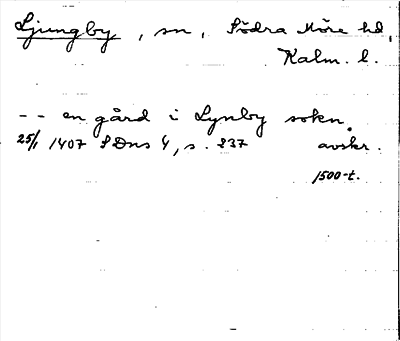 Ljungby, sn, Södra Möre hd,
Kalm. l.
-- en gård i Lynby sokn.
25/1 1407 SDns 4, s. 837 avskr.
1500-t.